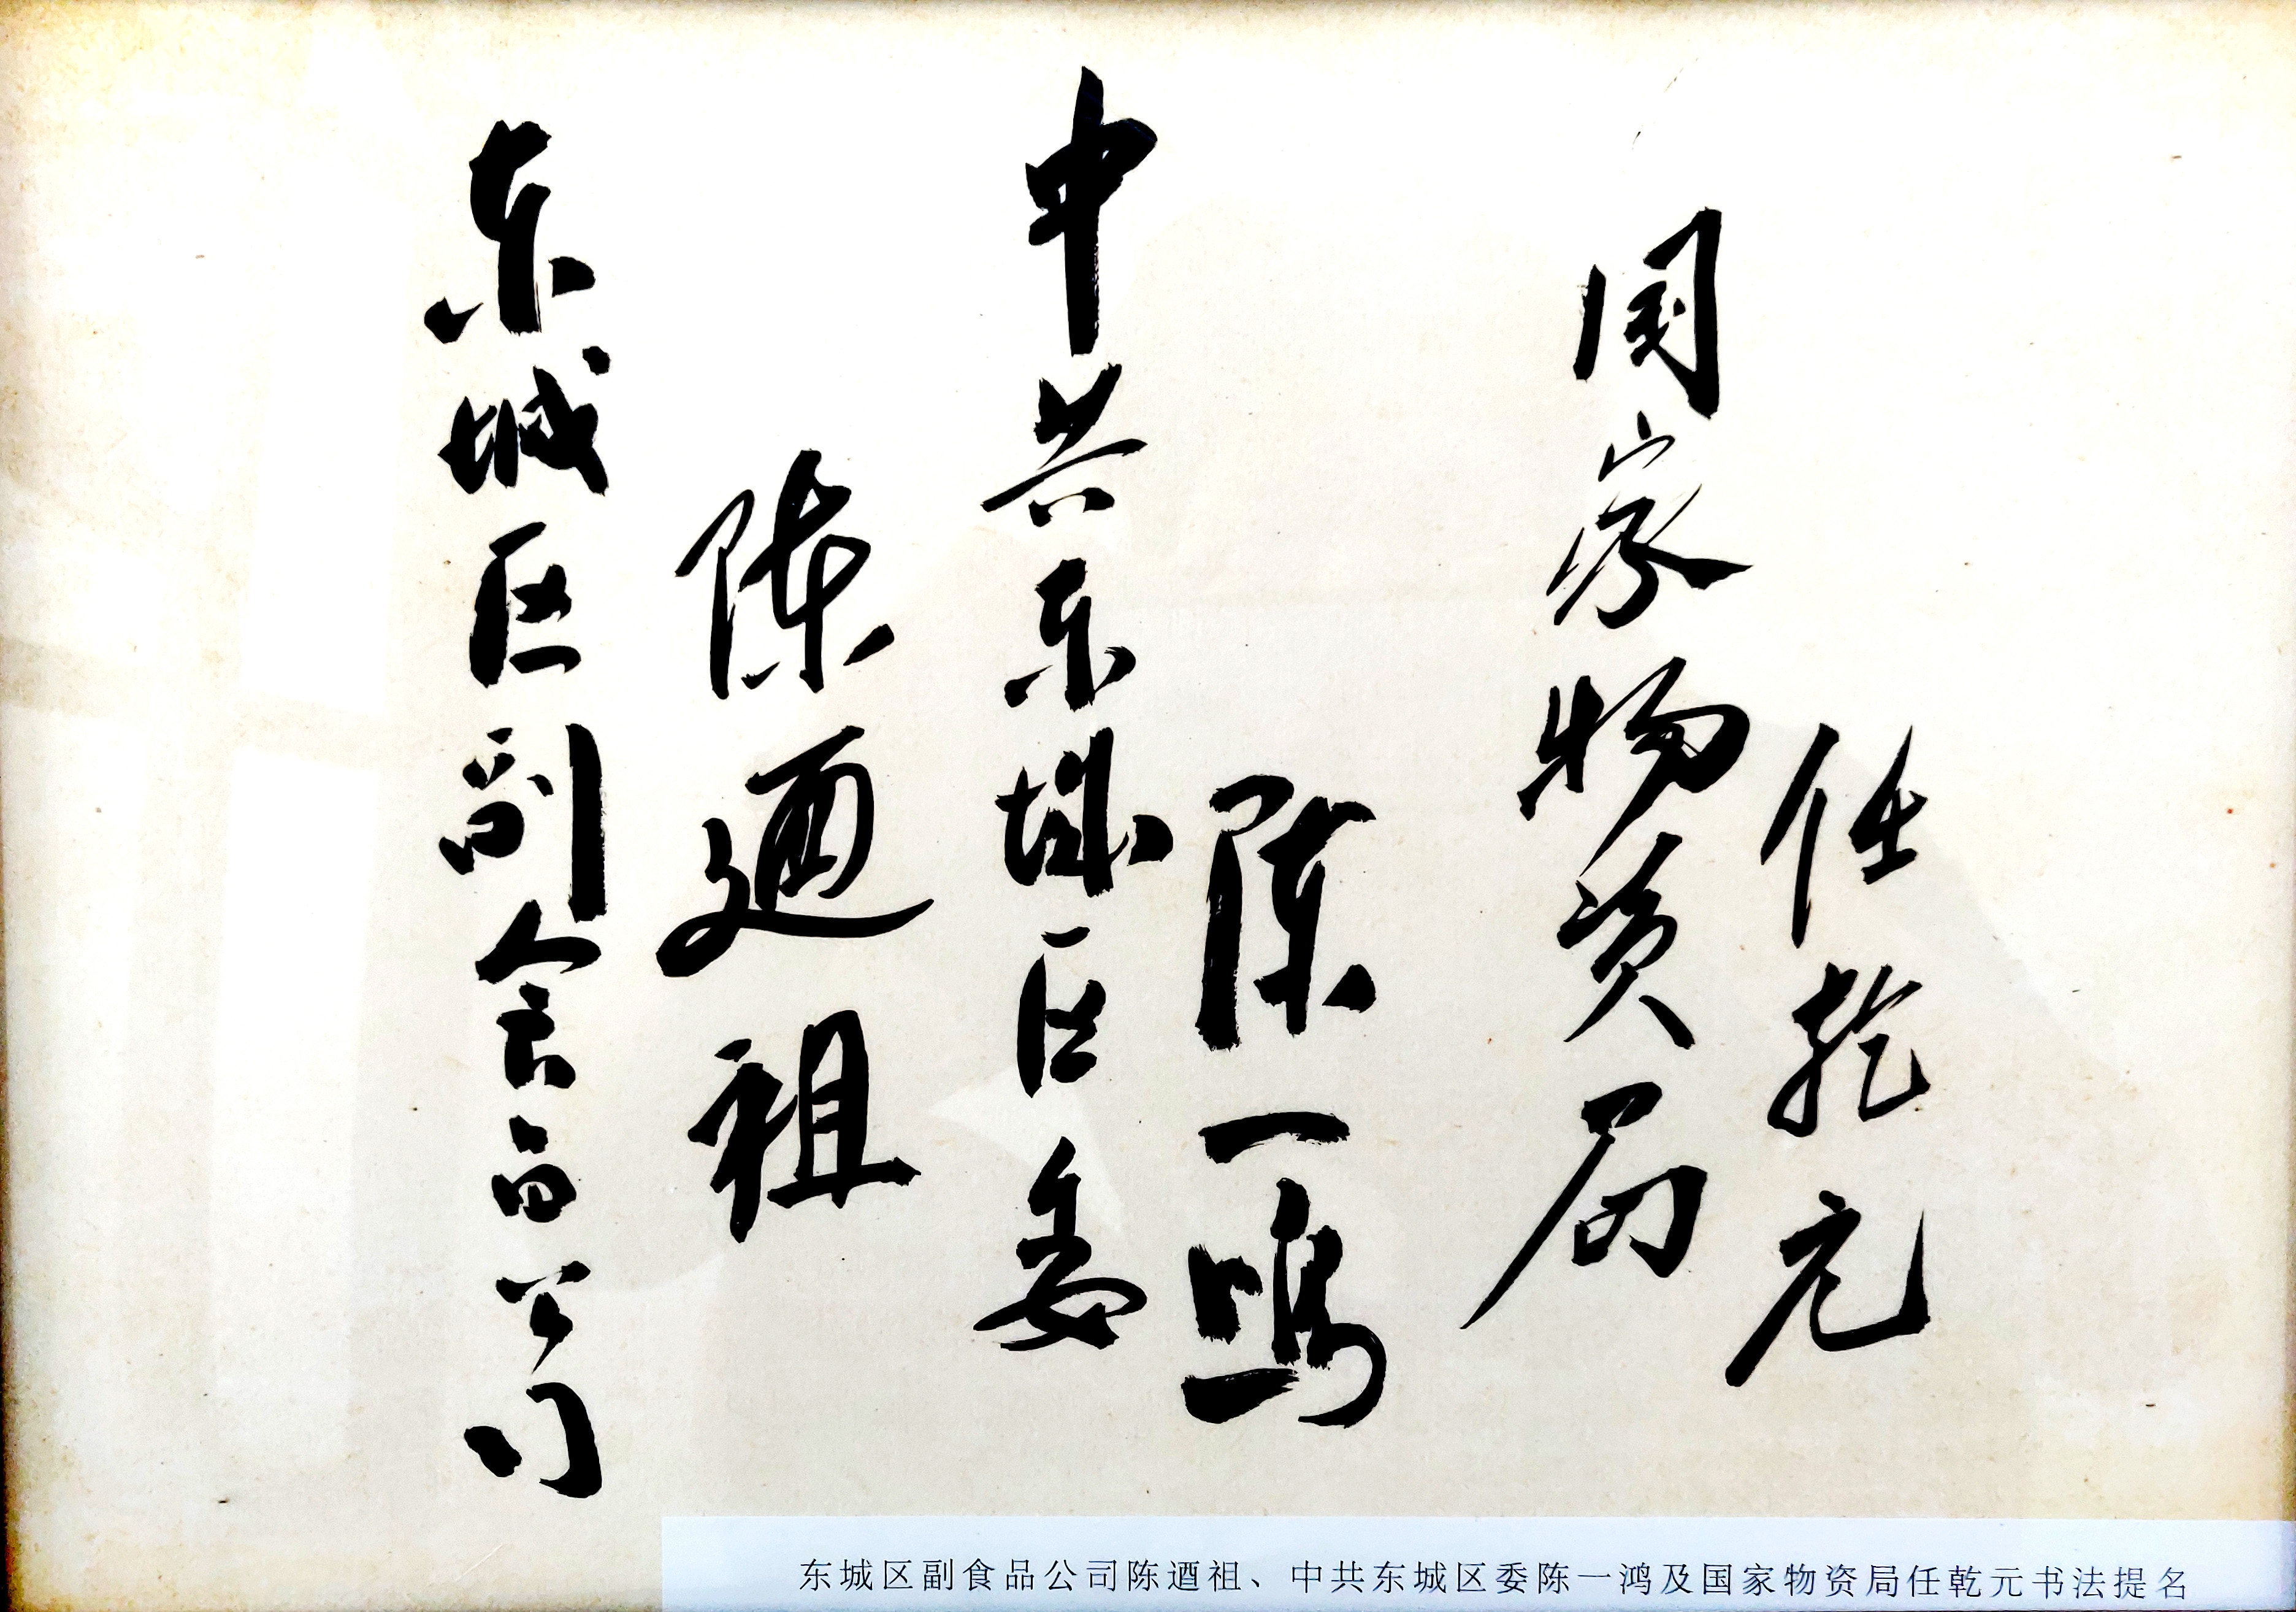 东城区副食品公司
陈迺祖
中共东城区委
陈一鸣
国家物资局
任乾元
东城区副食品公司陈迺祖、中共东城区委陈一鸿及国家物资局任乾元书法提名